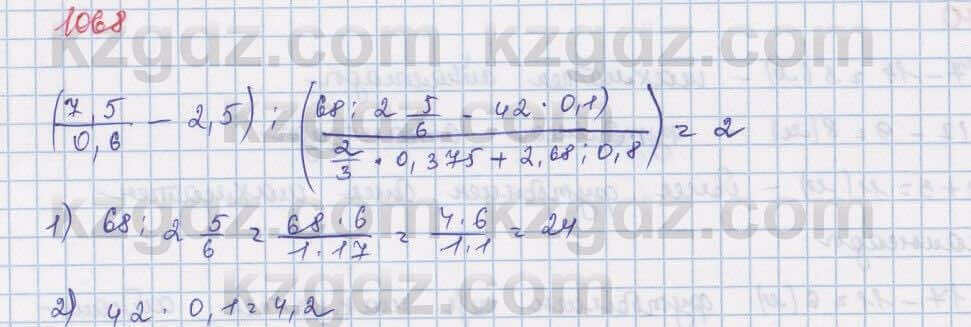 1068
kzgdz.com kzgdz.com
(7,5/0,6 - 2,5) : ((68 : 2 5/6 - 42 · 0,1)/(2/3 · 0,375 + 2,68 : 0,8)) = 2
1) 68 : 2 5/6 = 68 · 6/1 · 17 = 4 · 6/1 · 1 = 24
2) 42 · 0,1 = 4,2